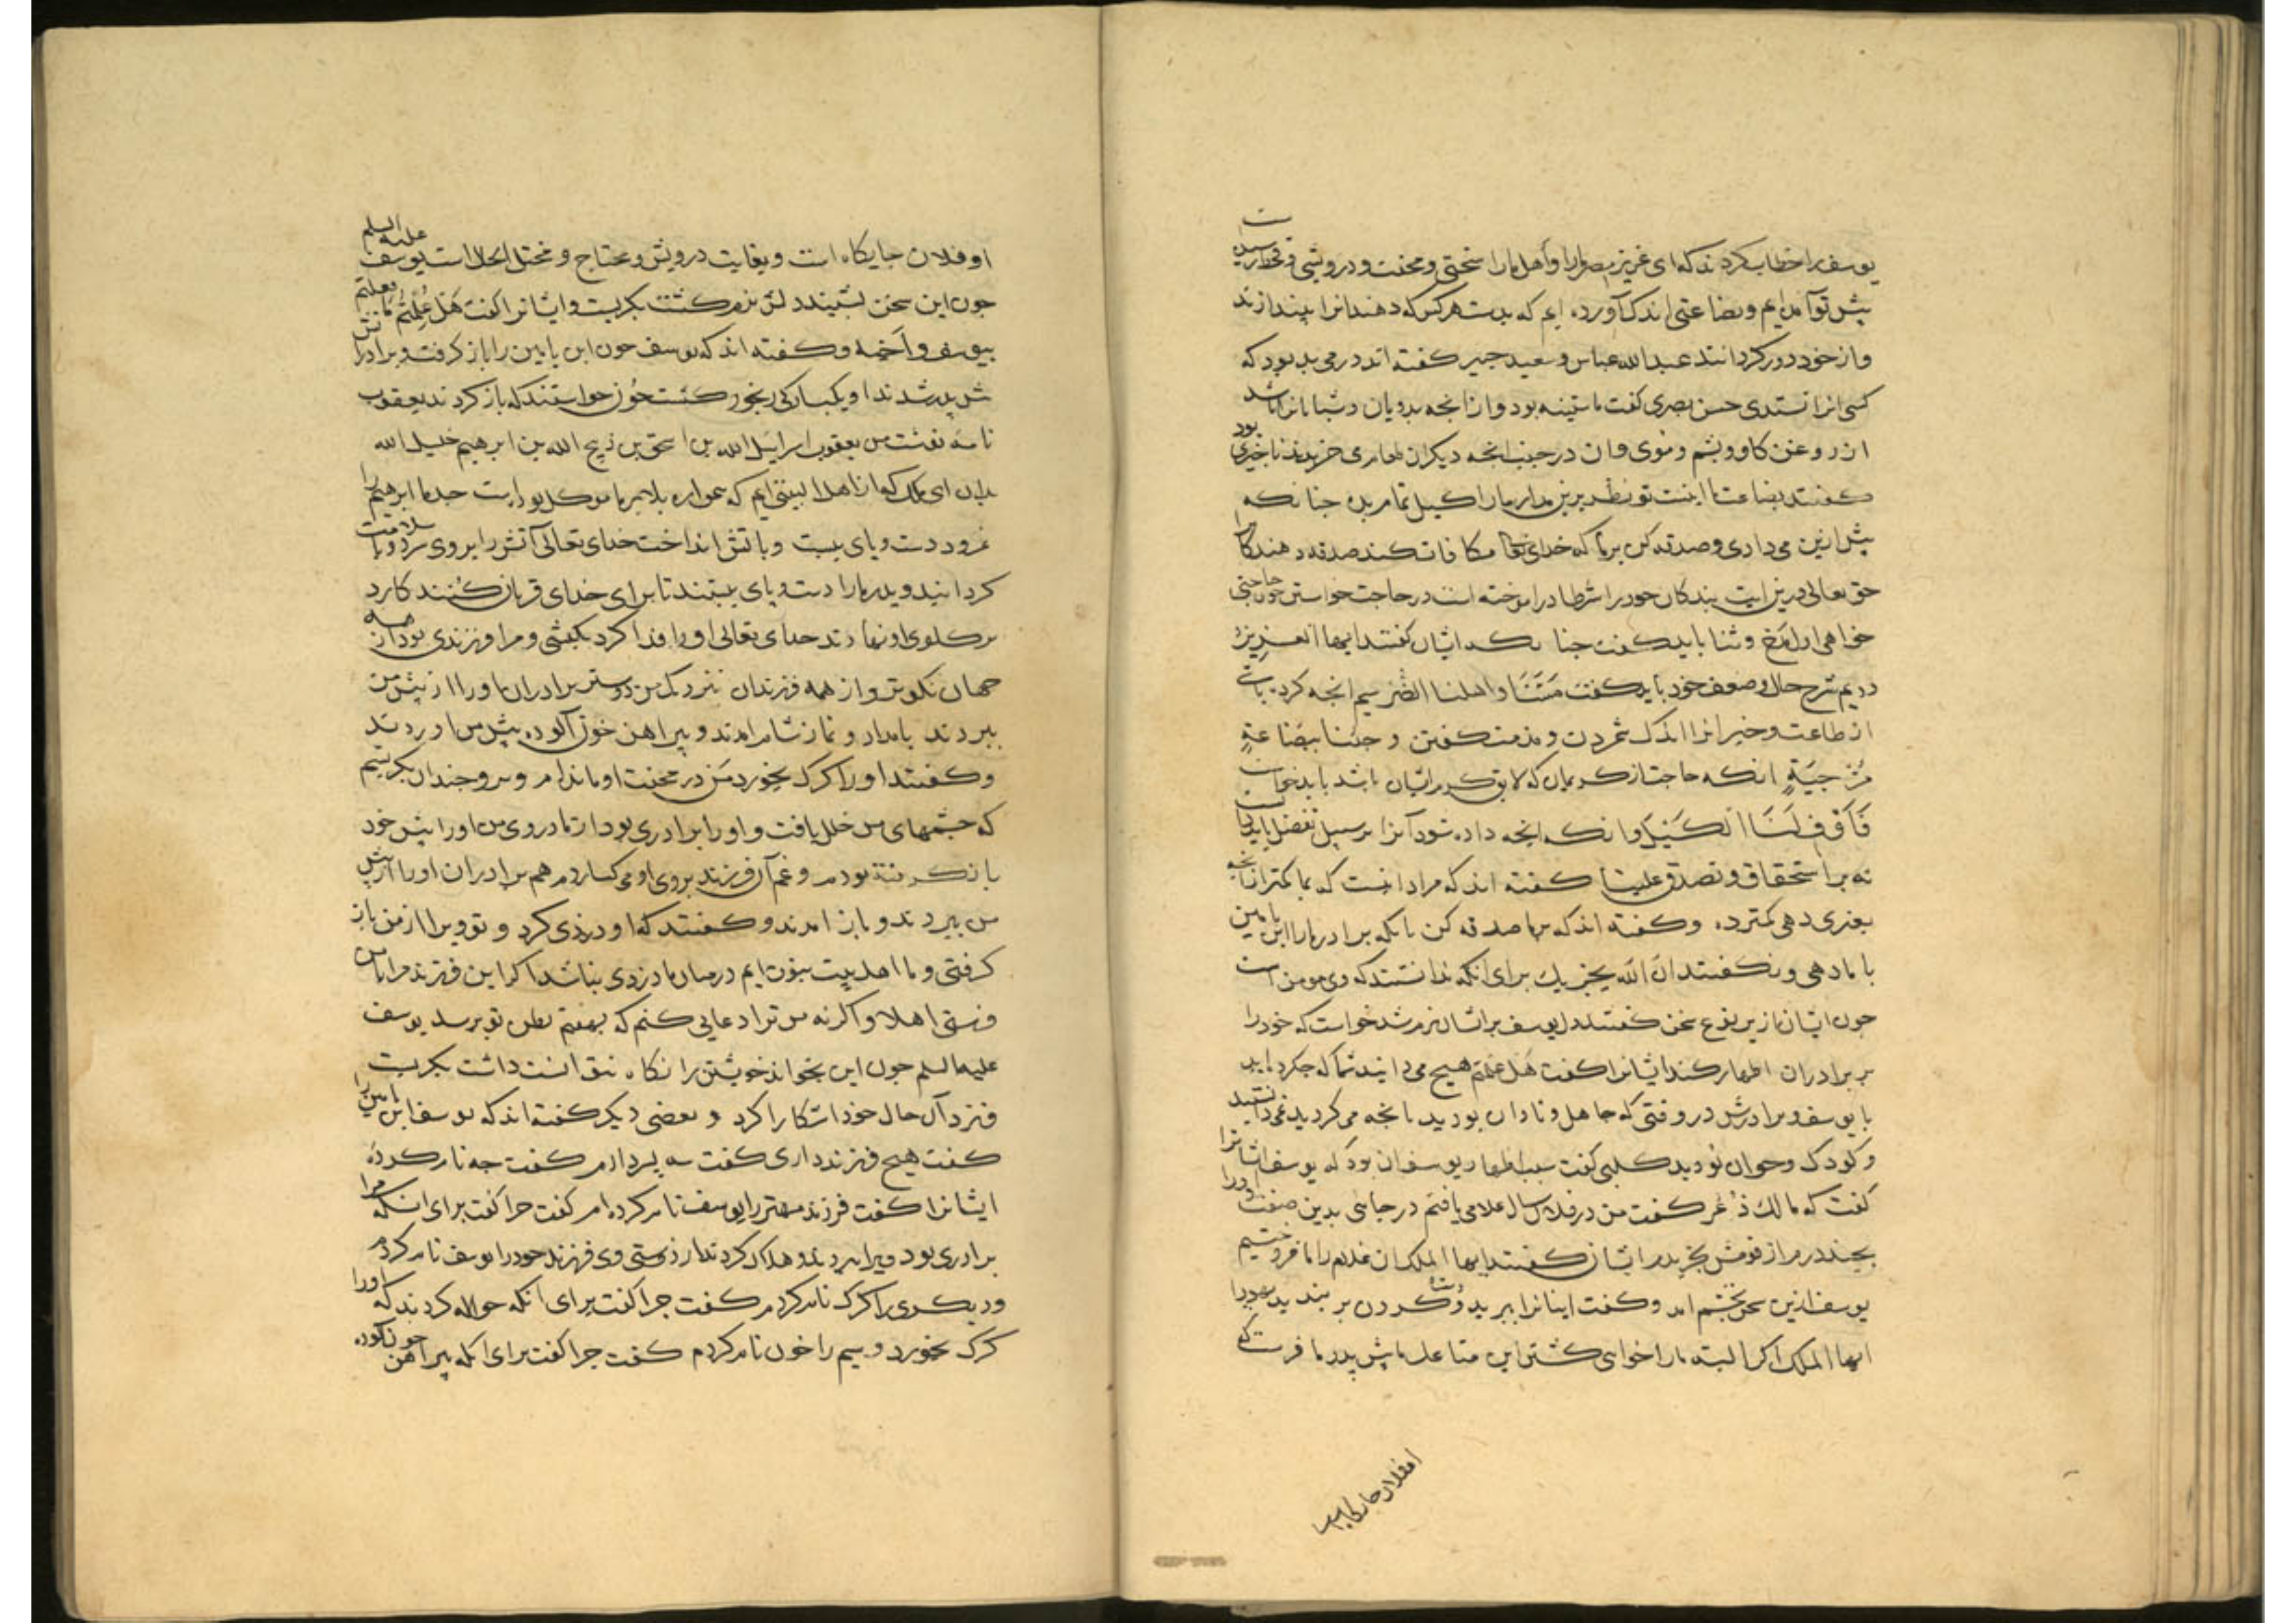 یوسف را خطاب کردند که ای عزیز مصر ما را و أهل ما را سختی و محنت و درویشی و قحط رسیده است
پیش تو آمده ایم و بضاعتی اندک آورده ایم که بدست هر کس که دهند انرا بیندازند
و از خود دور کردانند عبدالله عباس و سعید جبیر کفته اند درمی بد بود که
کسی انرا نستدی حسن بصری کفت ما ستینه بود و از انجه بدویان و شبانانرا باشد
از روغن کاو و پشم و موی و ان در جنب انجه دیکران طعام می خریدند ناجیزی بود
کفتند بضاعت ما اینست تو نظر برین مدار ما را کیل تمام بده جنانکه
پیش ازین می دادی و صدقه کن بر ما که خدای تعالی مکافات کند صدقه دهندکانرا
حق تعالی درین ایت بندکان خود را شرط ادب اموخته است در حاجت خواستن جون حاجتی
خواهی اول مدح و ثنا باید کفت جنانکه ایشان کفتند ایها العزیز
دویم شرح حال و ضعف خود باید کفت مَسَّنَا و اهلنا الضُر سیم انجه کرده باشی
از طاعت و خیر انرا اندک شمردن و مذمت کفتن و جئنا ببضاعةٍ
مُزجیَةٍ انکه حاجت از کریمان که لایق کرم ایشان باشد باید خواست
فَاَوفِ لَنَا الکَیلَ و انکه انجه داده شود آنرا بر سبیل تفضل باید
نه بر استحقاق و تصدق علینا کفته اند که مراد انست که بما کمتر از انجه
بغیری دهی کمتر ده و کفته اند که بر ما صدقه کن بانکه برادر ما را ابن یامین
با ما دهی و نکفتند انّ الله یجزیک برای انکه ندانستند که وی مومن است
جون ایشان ازین نوع سخن کفتند دل یوسف بر ایشان نرم شد خواست که خود را
بر برادران اظهار کند ایشانرا کفت هَل علمتم هیج می دانید شما که جه کرده اید
با یوسف و برادرش در وقتی که جاهل و نادان بودید بانجه می کردید نمی دانستید
و کودک و جوان بودید کلبی کفت سبب اظهار یوسف ان بود که یوسف ایشانرا
کفت که مالک ذُعر کفت من در فلان سال غلامی یافتم در جاهی بدین صفت و او را
بجند درم از قومش بخریدم ایشان کفتند ایها الملک ان غلام را ما فروختیم
یوسف ازین سخن بخشم امد و کفت اینانرا ببرید و کردن بزنید یهودا
ایها الملک اکر البته ما را خواهی کشتن این متاع ما پیش پدر ما فرست که
او فلان جایکاه است
او فلان جایکاه است و بغایت درویش و محتاج و مختل الحال است یوسف علیه السلم
جون این سخن بشنید دلش نرم کشت بکریست و ایشانرا کفت هَل عَلِمتُم مَا فعلتم
بیوسف و اَخیه و کفته اند که یوسف جون ابن یامین را باز کرفت و برادرانش
پیش پدر شدند او یکبارکی رنجور کشت جُون خواستند که باز کردند یعقوب
نامه نوشت من یعقوب اسرایل الله بن اسحق بن ذبیح الله بن ابرهیم خلیل الله
بدان ای ملک که ما از اهل البیتی ایم که همواره بلا بر ما موکل بوده است جد ما ابرهیم را
نمرود دست و پای ببست و باتش انداخت خدای تعالی آتش را بر وی سرد و با سلامت
کردانید و پدر ما را دست و پای ببستند تا برای خدای قربان کُنند کارد
بر کلوی او نهادند خدای تعالی او را فدا کرد بکبشی و مرا فرزندی بود از همه
جهان نکوتر و از همه فرزندان بنزدیک من دوستر برادران او را از پیش من
ببردند بامداد و نماز شام امدند و پیراهن خون آلوده پیش من اوردند
و کفتند او را کرک بخورد من در محنت او ماندم و برو جندان بکریستم
که جشمهای من خلل یافت و او را برادری بود از مادر وی من او را پیش خود
باز کرفته بودم و غم آن فرزند بروی او می کساردم هم برادران او را از پیش
من ببردند و باز امدند و کفتند که او دزدی کرد و تو ویرا از من باز
کرفتی و ما اهل بیت نبوت ایم در میان ما دزدی نباشد اکر این فرزند مرا با من
فرستی اهلا و اکرنه من ترا دعایی کنم که بهفتم بطن تو برسد یوسف
علیه السلم جون این بخواند خویشتن را نکاه نتوانست داشت بکریست
و نزد آن حال خود اشکارا کرد و بعضی دیکر کفته اند که یوسف ابن یامین را
کفت هیج فرزند داری کفت سه پسر دارم کفت جه نام کردهٔ
ایشانرا کفت فرزند مهتر را یوسف نام کرده ام کفت جرا کفت برای انکه مرا
برادری بود ویرا ببردند و هلاک کردند از دوستی وی فرزند خود را یوسف نام کردم
و دیکری را کرک نام کردم کفت جرا کفت برای انکه حواله کردند که او را
کرک بخورد و سیم را خون نام کردم کفت جرا کفت برای انکه پیراهن خون آلوده